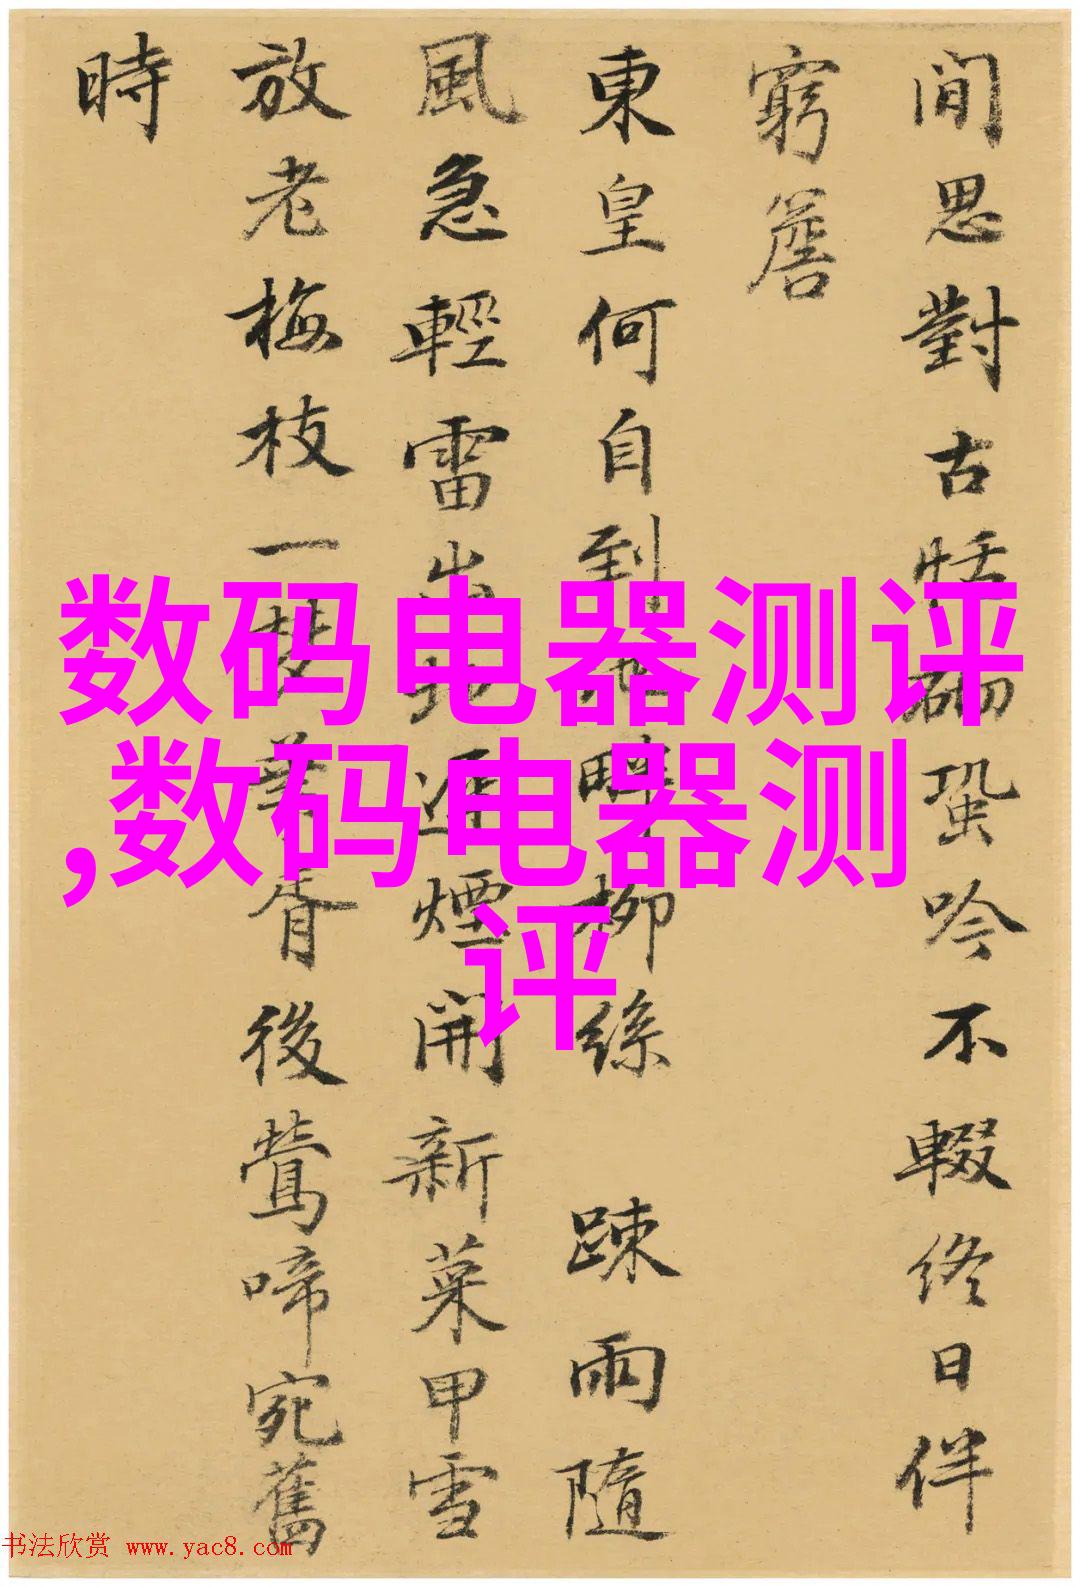 間思對古恬砌蛩吟不輟終日伴
窮簷
東皇何自到池畔柳絲 踈雨隨
風急輕雷出地遲煙開新菜甲雪
放老梅枝一春華胥後鶯啼宛舊
時
数码电器测评
,数码电器测
评
书法欣赏 www.yac8.com